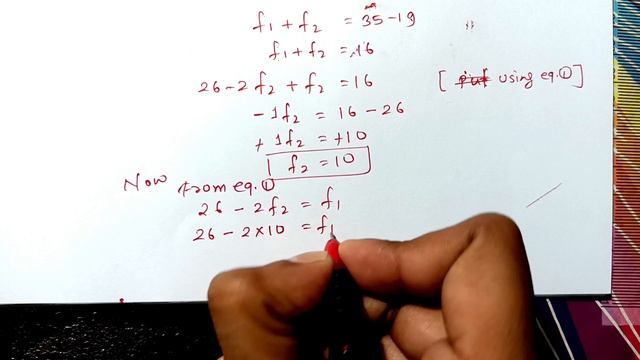 f₁ + f₂ = 35 - 19
f₁ + f₂ = 16
26 - 2f₂ + f₂ = 16 [ using eq.① ]
- 1f₂ = 16 - 26
+ 1f₂ = +10
f₂ = 10
Now from eq.①
26 - 2f₂ = f₁
26 - 2×10 = f₁